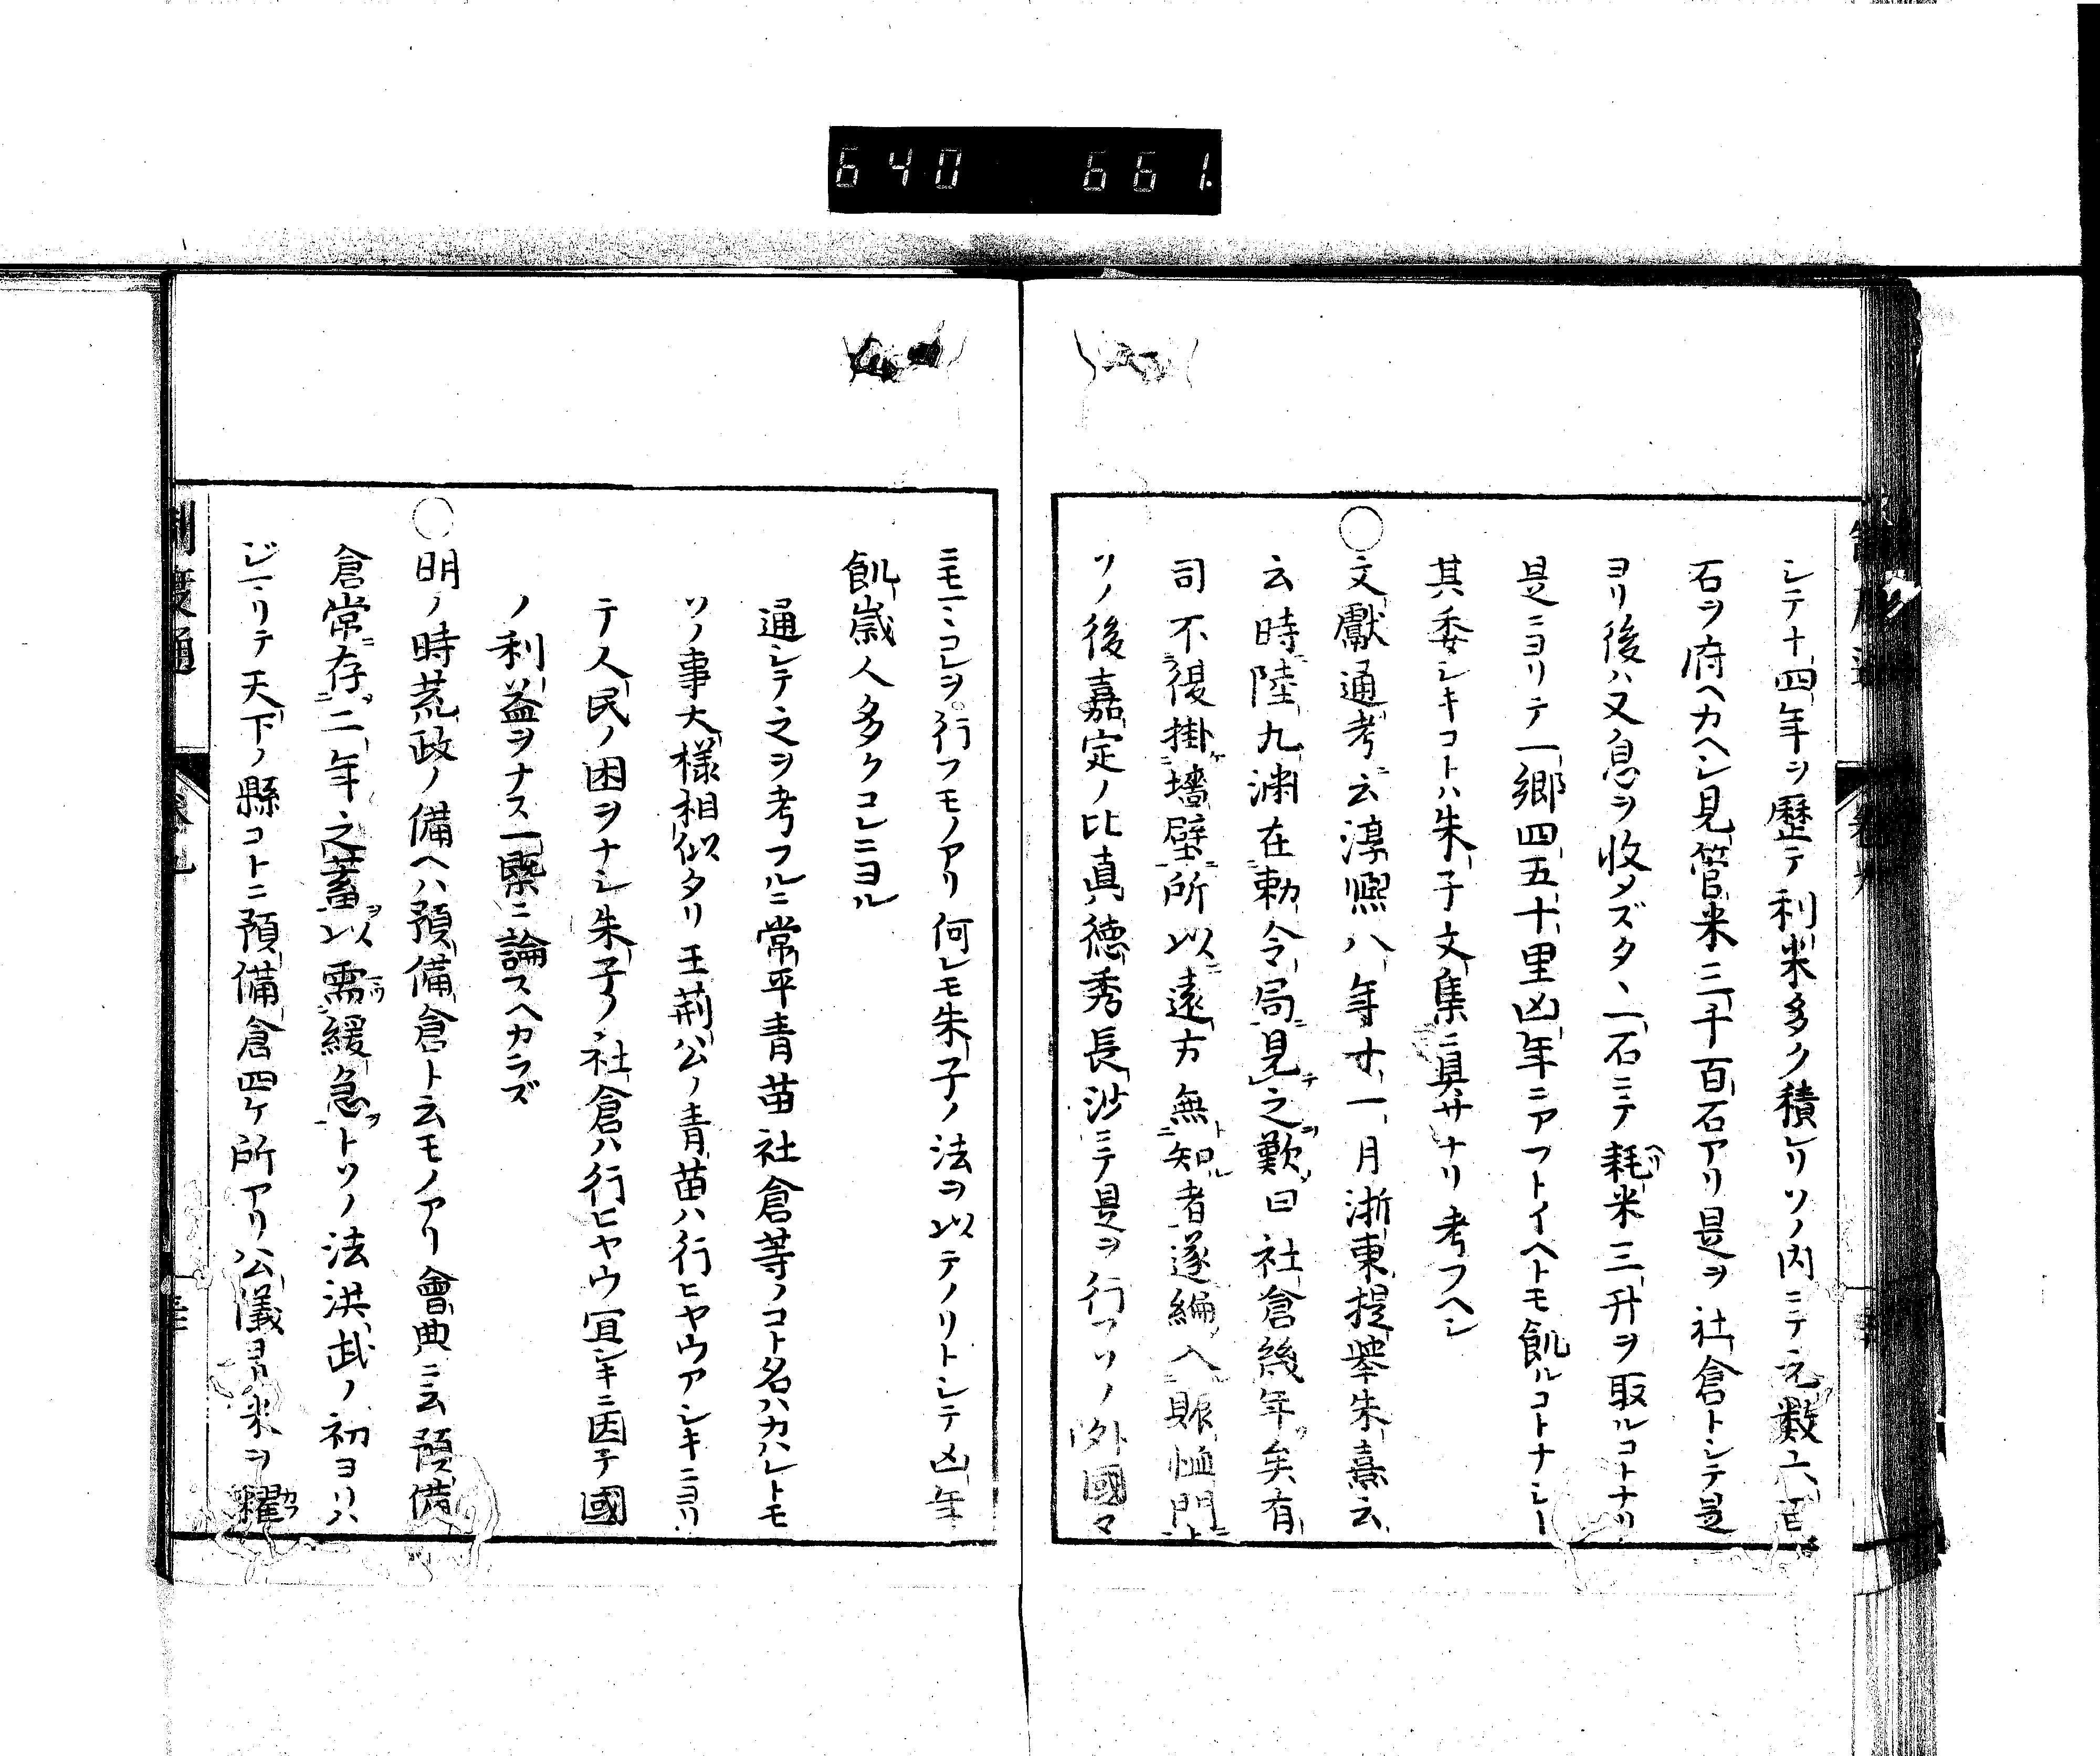 640 661.
シテ十四年ヲ歴テ利米多ク積レリソノ内ニテ元数六百
石ヲ府ヘカヘシ見管米三千百石アリ是ヲ社倉トシテ是
ヨリ後ハ又息ヲ收メズタヽ一石ニテ耗米三升ヲ取ルコトナリ
是ニヨリテ一郷四五十里凶年ニアフトイヘトモ飢ルコトナシ
其委シキコトハ朱子文集ニ具サナリ考フヘシ
○文獻通考ニ云淳熈八年十一月浙東提舉朱熹云
云時陸九渊在勅令局見之歎曰社倉幾年矣有
司不復掛墻壁所以遠方無知者遂編入賑恤門
ソノ後嘉定ノ比真德秀長沙ニテ是ヲ行フソノ外國々
ニモコレヲ行フモノアリ何レモ朱子ノ法ヲ以テノリトシテ凶年
飢歳人多クコレニヨル
通シテ之ヲ考フルニ常平青苗社倉等ノコト名ハカハレトモ
ソノ事大様相似タリ王荊公ノ青苗ハ行ヒヤウアシキニヨリ
テ人民ノ困ヲナシ朱子ノ社倉ハ行ヒヤウ宜シキニ因テ國
ノ利益ヲナス一槩ニ論スヘカラズ
○明ノ時荒政ノ備ヘハ預備倉ト云モノアリ會典ニ云預備
倉常存二年之蓄以需緩急トソノ法洪武ノ初ヨリハ
ジマリテ天下ノ縣コトニ預備倉四ケ所アリ公儀ヨリ米ヲ糴
制度通 卷九